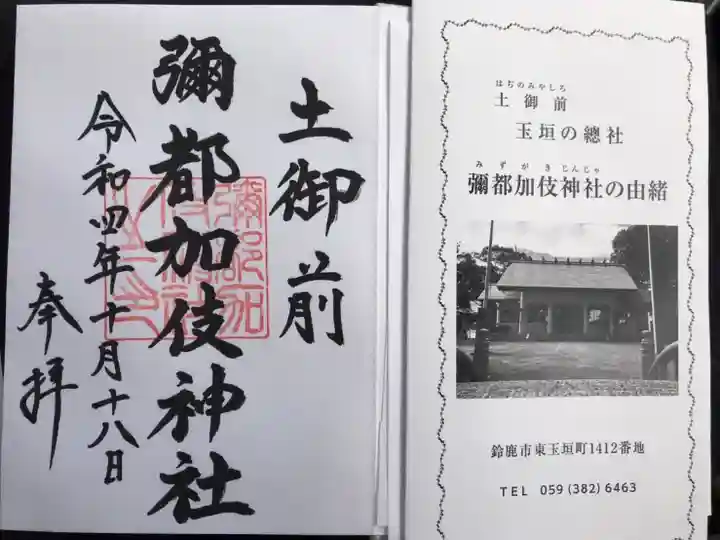 土御前
彌都加伎神社
令和四年十月十八日
奉拝
はぢのみやしろ
土御前
玉垣の總社
みずがきじんじゃ
彌都加伎神社の由緒
鈴鹿市東玉垣町1412番地
TEL 059(382)6463